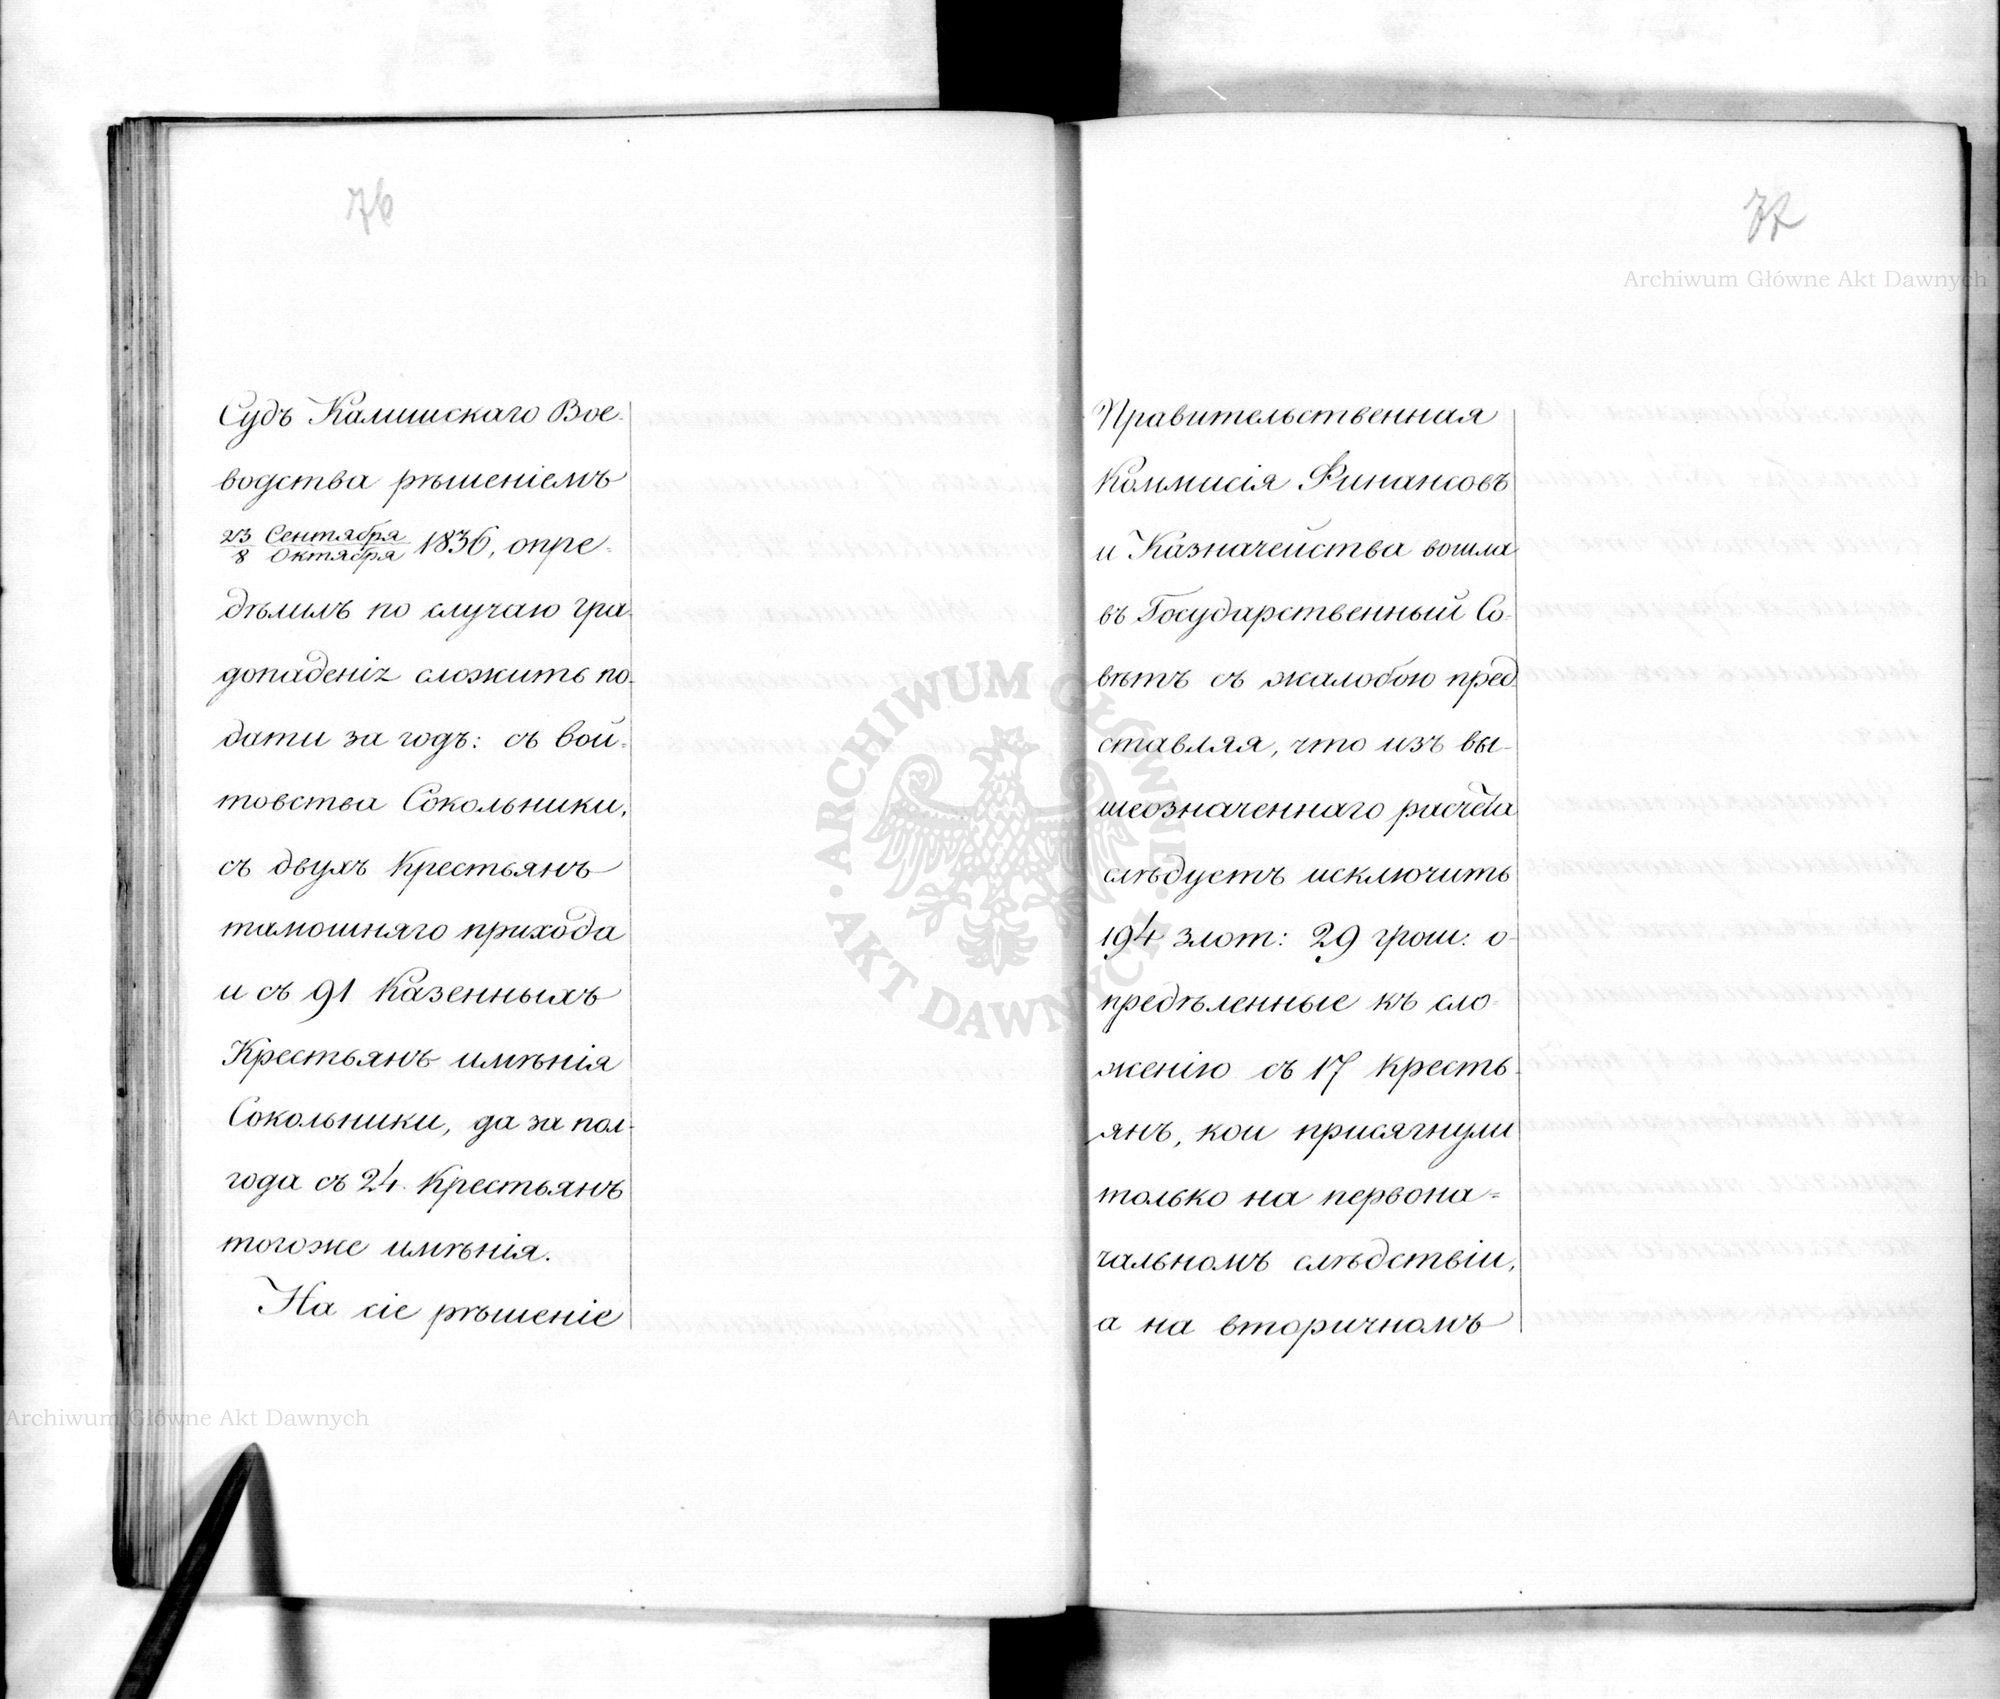 76
Судъ Калишскаго Вое-
водства рѣшеніемъ
23 Сентября / 8 Октября 1836, опре-
дѣлилъ по случаю гра-
допаденія сложить по-
дати за годъ: съ вой-
товства Сокольники,
съ двухъ Крестьянъ
тамошняго прихода
и съ 91 Казенныхъ
Крестьянъ имѣнія
Сокольники, да за пол-
года съ 24 Крестьянъ
тогоже имѣнія.
На сіе рѣшеніе
77
Archiwum Główne Akt Dawnych
Правительственная
Коммисія Финансовъ
и Казначейства вошла
въ Государственный Со-
вѣтъ съ жалобою пред-
ставляя, что изъ вы-
шеозначеннаго расчета
слѣдуетъ исключить
194 злот: 29 грош: о-
предѣленные къ сло-
женію съ 17 кресть-
янъ, кои присягнули
только на первона-
чальномъ слѣдствіи,
а на вторичномъ
ARCHIWUM GŁÓWNE AKT DAWNYCH
Archiwum Główne Akt Dawnych